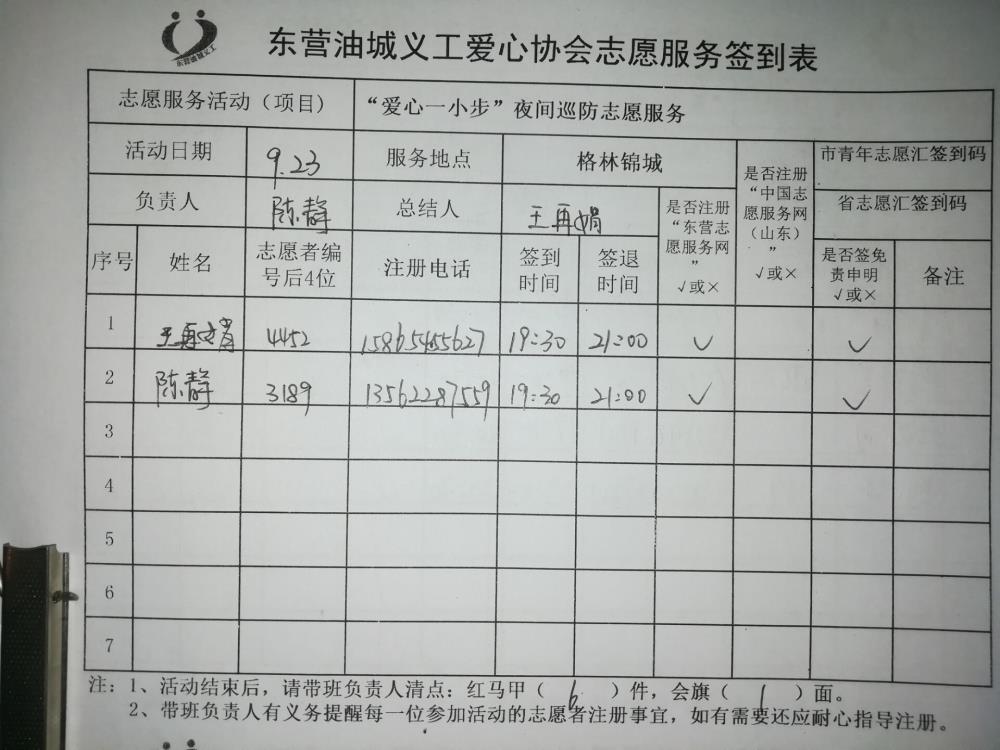 东营油城义工
东营油城义工爱心协会志愿服务签到表
志愿服务活动（项目） “爱心一小步”夜间巡防志愿服务
活动日期 9.23 服务地点 格林锦城 是否注册“中国志愿服务网（山东）” √或× 市青年志愿汇签到码
负责人 陈静 总结人 王再娟 是否注册“东营志愿服务网” √或× 省志愿汇签到码
序号 姓名 志愿者编号后4位 注册电话 签到时间 签退时间 是否签免责申明 √或× 备注
1 王再娟 4452 15865455627 19:30 21:00 √ √
2 陈静 3189 13562287559 19:30 21:00 √ √
3
4
5
6
7
注：1、活动结束后，请带班负责人清点：红马甲（ 6 ）件，会旗（ 1 ）面。
2、带班负责人有义务提醒每一位参加活动的志愿者注册事宜，如有需要还应耐心指导注册。